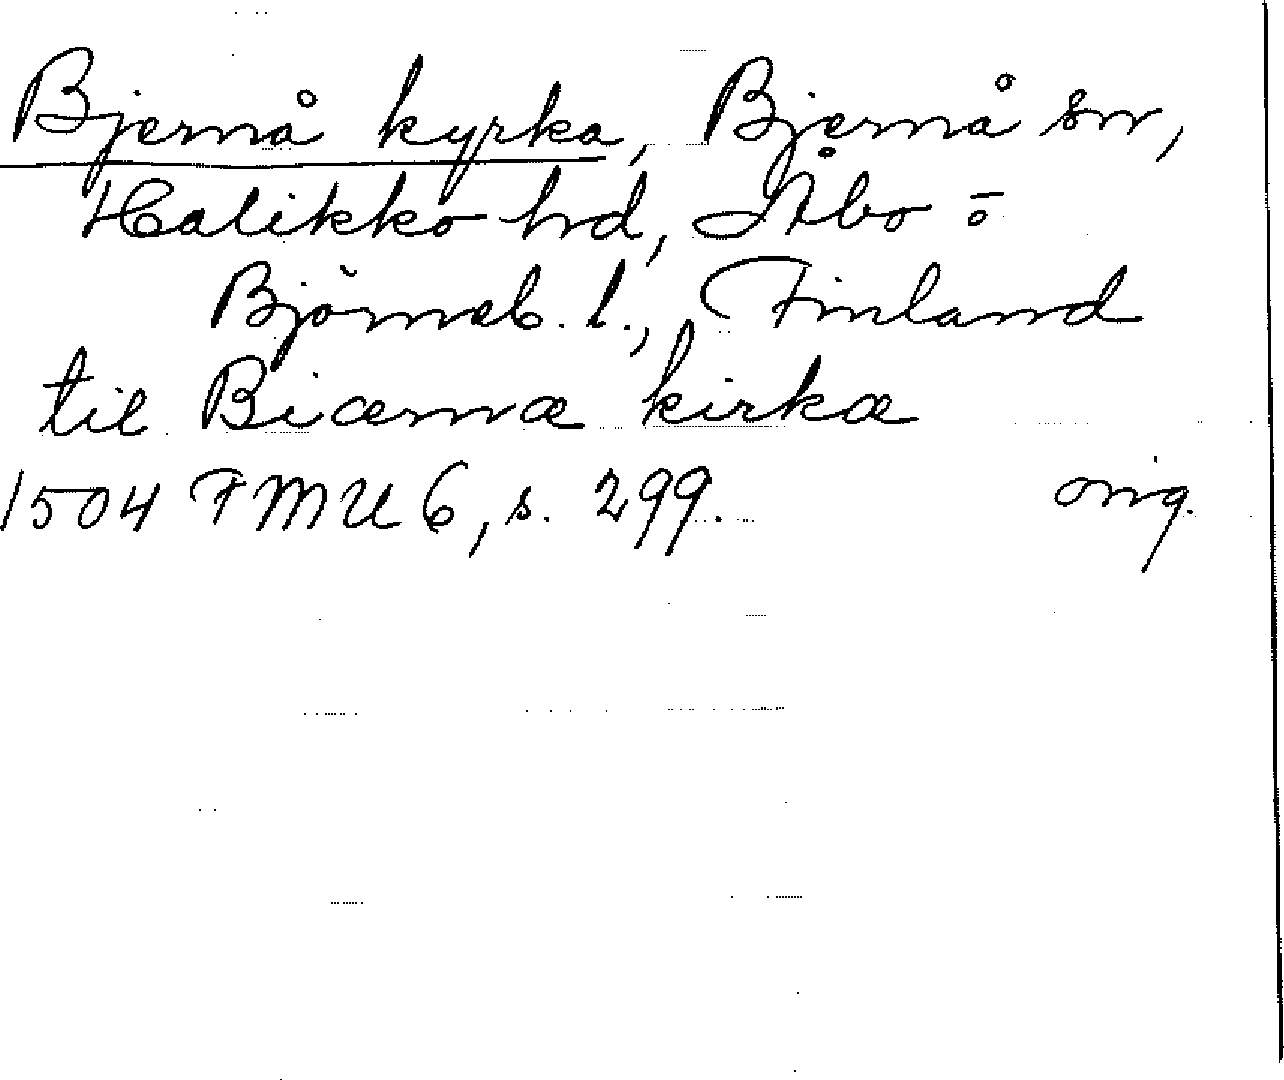 Bjernå kyrka, Bjernå sn,
Halikko hd, Åbo o
Björneb. l., Finland
til Biærnæ kirkæ
1504 FMU 6, s. 299. orig.